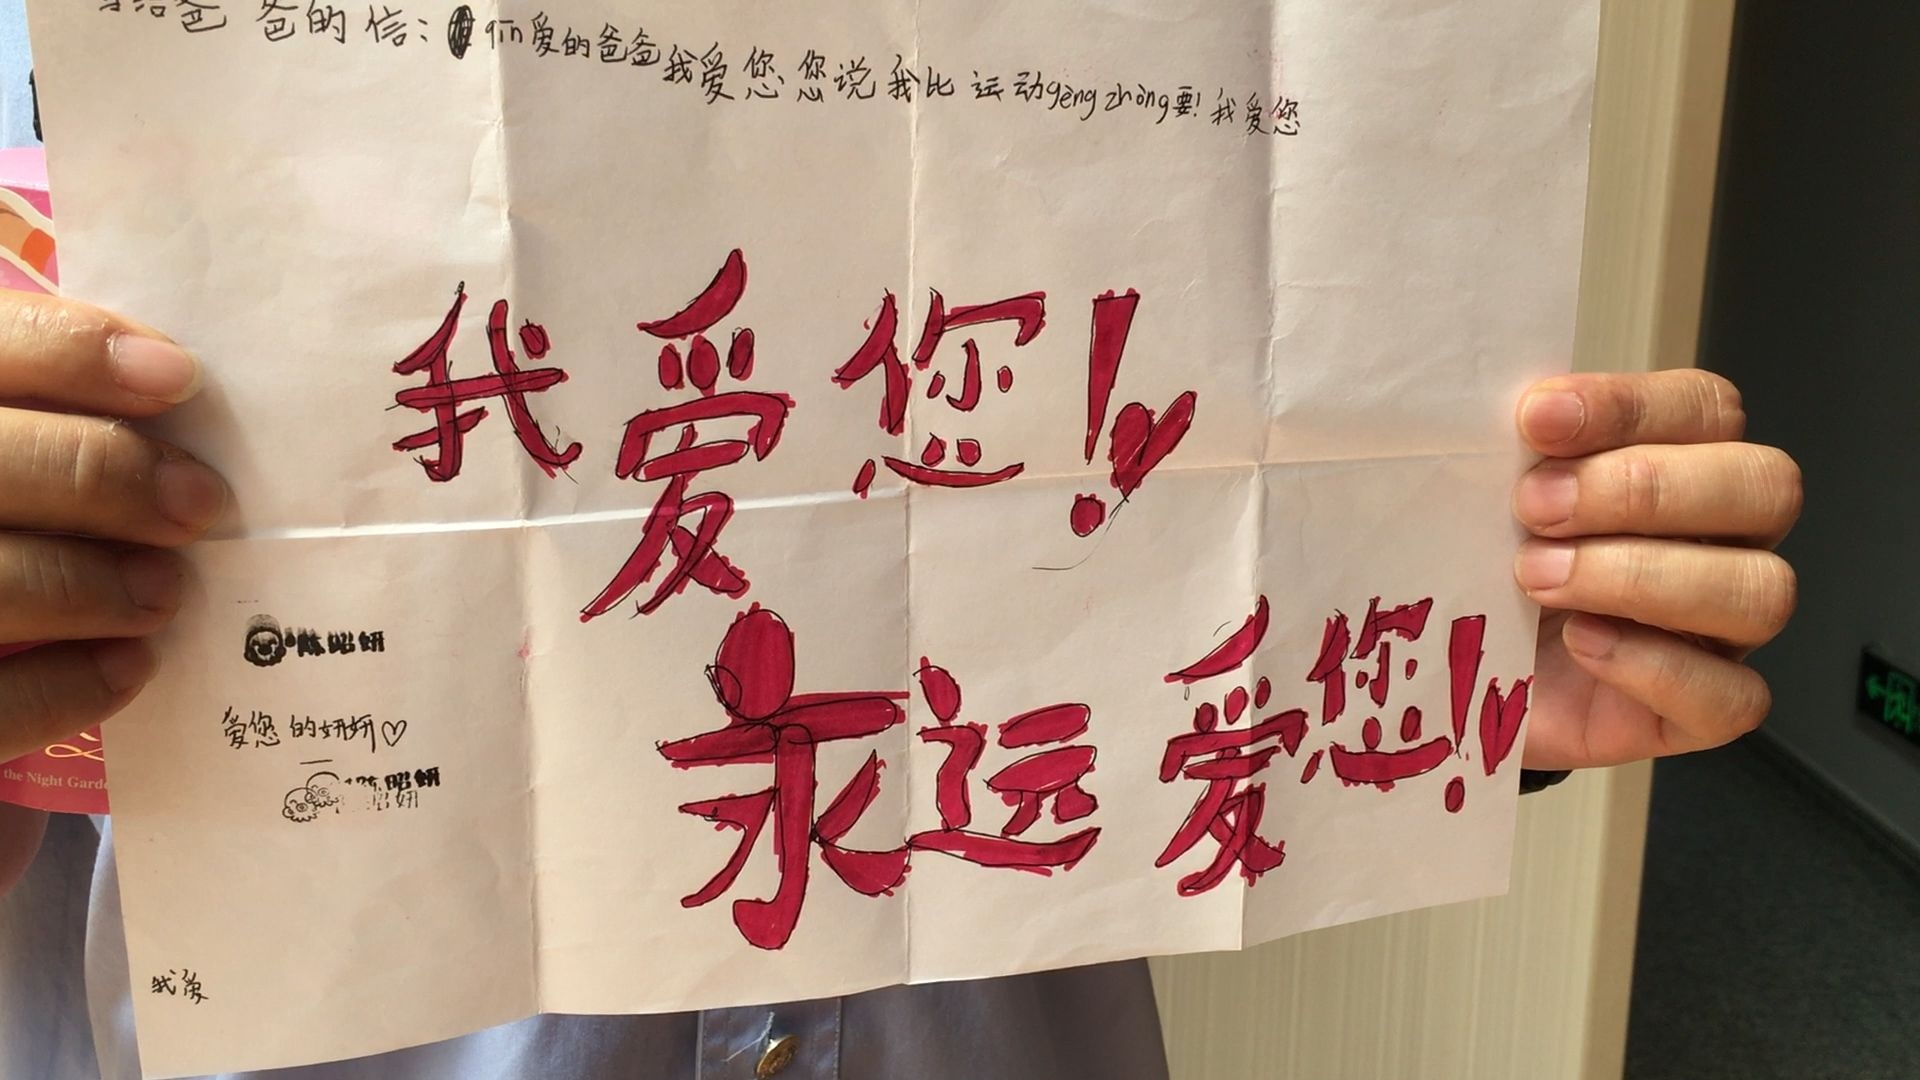 写给爸爸的信：qīn爱的爸爸我爱您您说我比运动gèng zhòng要！我爱您
我爱您！
永远爱您！
陈昭妍
爱您的妍妍♡
陈昭妍
昭妍
我爱
the Night Garde